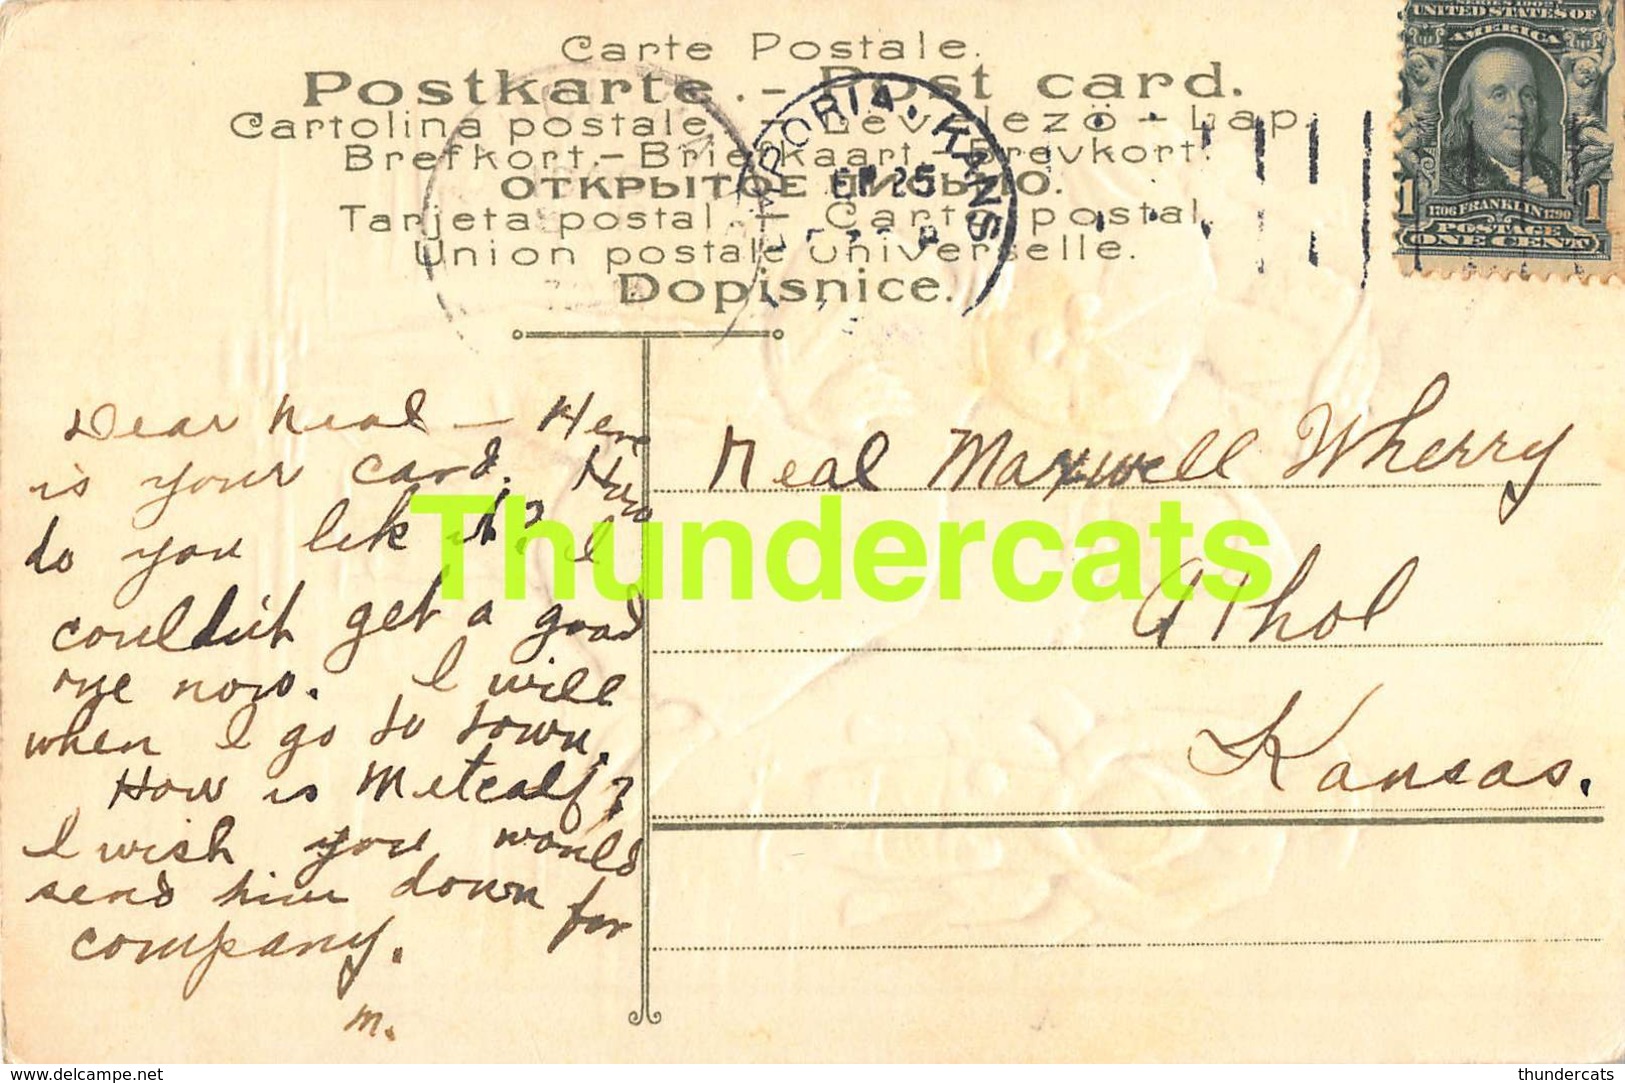 Carte Postale.
Postkarte. - Post card.
Cartolina postale. - Levelezö - Lap.
Brefkort. - Briefkaart. - Brevkort.
ОТКРЫТОЕ ПИСЬМО.
Tarjeta postal. - Carte postal.
Union postale universelle.
Dopisnice.
EMPORIA. KANS
25
UNITED STATES OF
AMERICA
1 1706 FRANKLIN 1790 1
POSTAGE
ONE CENT
Dear Neal - Here
is your card. How
do you lik it? I
couldn't get a good
one now. I will
when I go to town.
How is Metcalf?
I wish you would
send him down for
company.
M.
Neal Maxwell Wherry
Athol
Kansas.
Thundercats
www.delcampe.net
thundercats